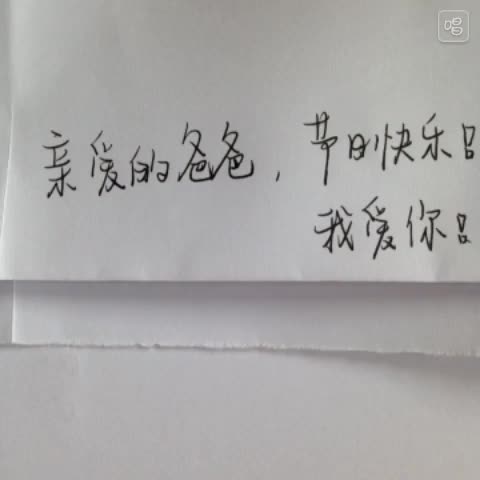 亲爱的爸爸，节日快乐！
我爱你！
唱